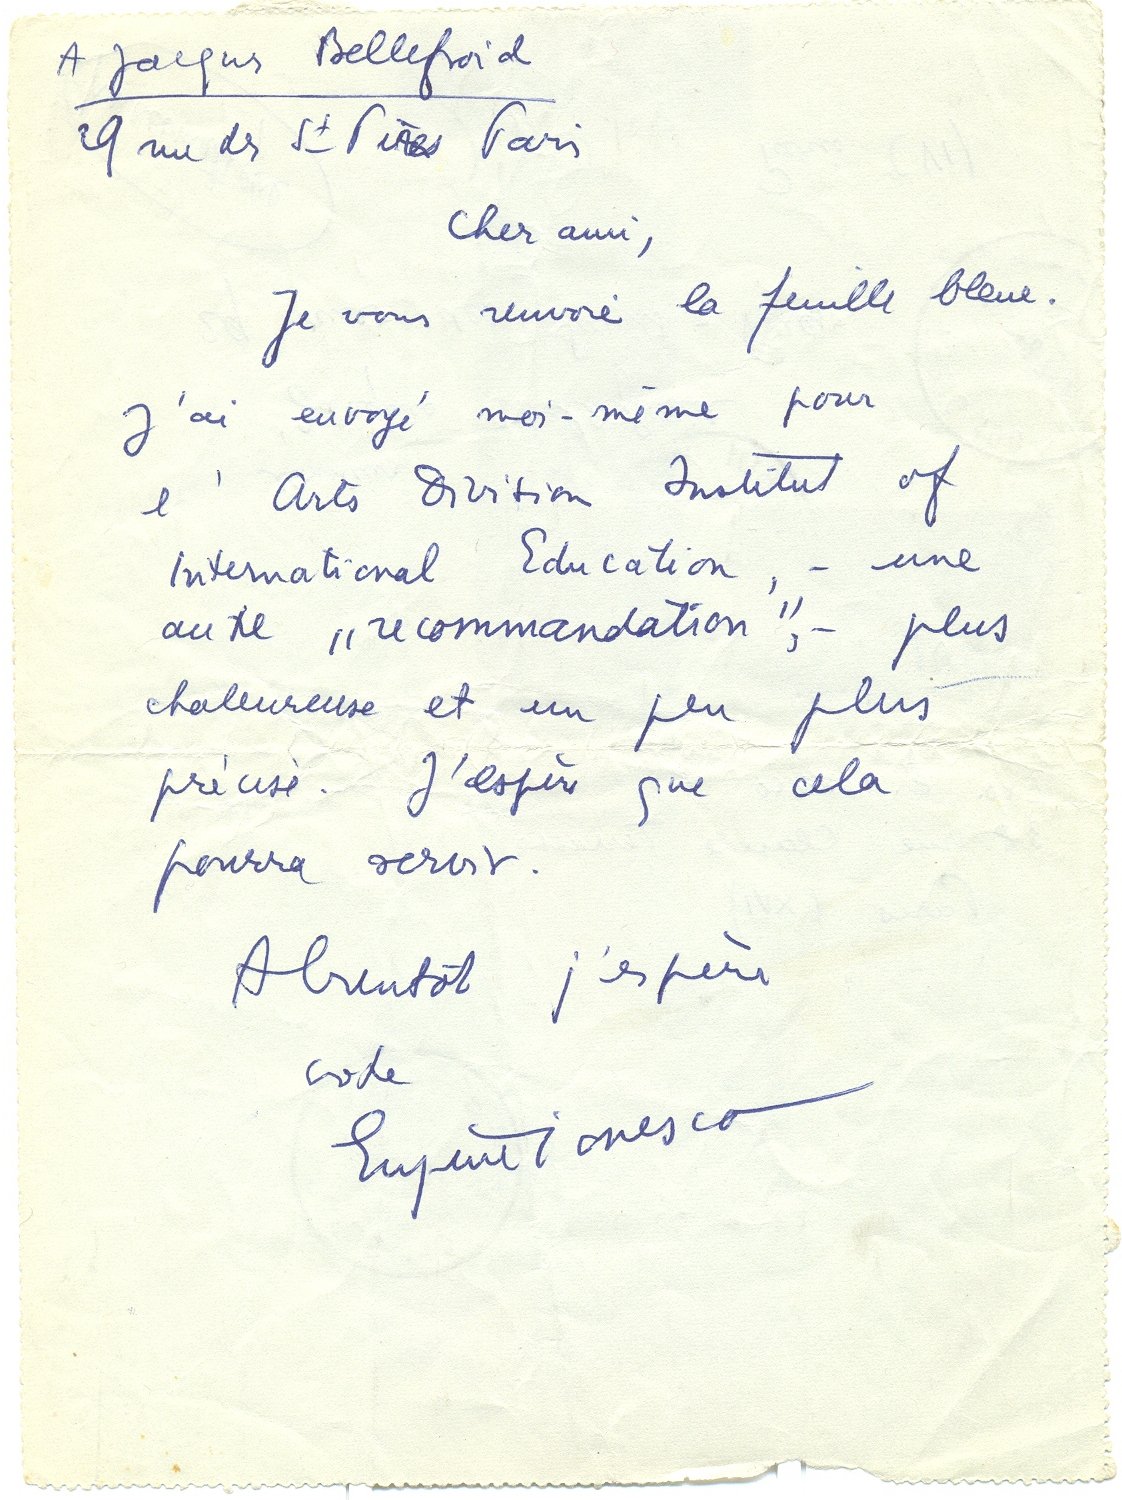 A Jacques Bellefroid
29 rue des St Pères Paris
Cher ami,
Je vous renvoie la feuille bleue.
J'ai envoyé moi-même pour
l' Arts Division Institut of
International Education, - une
autre „recommandation”, - plus
chaleureuse et un peu plus
précise. J'espère que cela
pourra servir.
A bientôt j'espère
votre
Eugène Ionesco